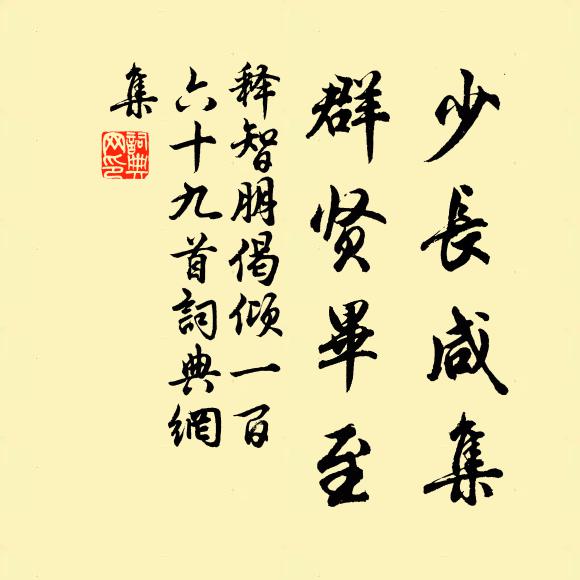 少長咸集
群贤畢至
释智朋偈倾一百
六十九首詞典網
集
詞典網印